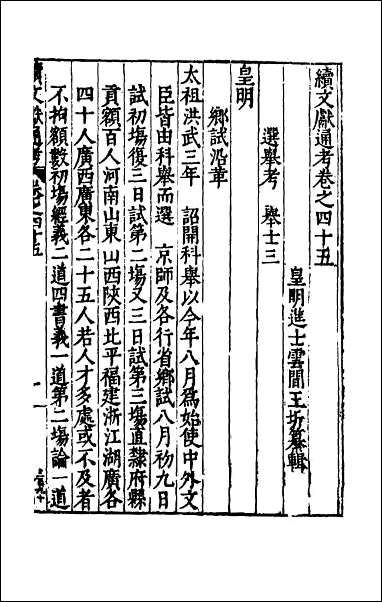 續文獻通考卷之四十五
皇明進士雲間王圻纂輯
選舉考 舉士三
皇明
鄉試沿革
太祖洪武三年 詔開科舉以今年八月爲始使中外文
臣皆由科舉而選 京師及各行省鄉試八月初九日
試初場復三日試第二場又三日試第三塲直隸府縣
貢額百人河南山東山西陝西北平福建浙江湖廣各
四十人廣西廣東各二十五人若人才多處或不及者
不拘額數初塲經義二道四書義一道第二塲論一道
續文獻通考 卷之四十五 一